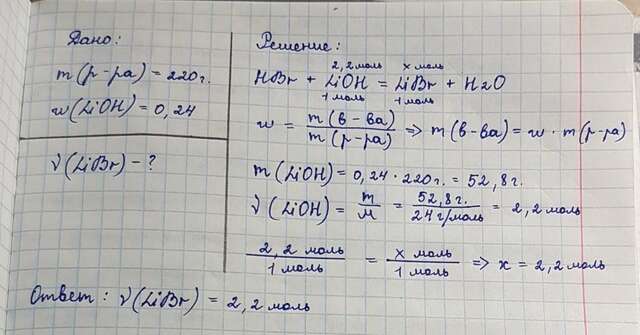 Дано:
m(р-ра) = 220г.
w(LiOH) = 0,24
ν(LiBr) - ?
Решение:
2,2 моль x моль
HBr + LiOH = LiBr + H2O
1 моль 1 моль
w = m(в-ва) / m(р-ра) => m(в-ва) = w · m(р-ра)
m(LiOH) = 0,24 · 220г. = 52,8г.
ν(LiOH) = m / M = 52,8г. / 24г/моль = 2,2 моль
2,2 моль / 1 моль = x моль / 1 моль => x = 2,2 моль
Ответ: ν(LiBr) = 2,2 моль